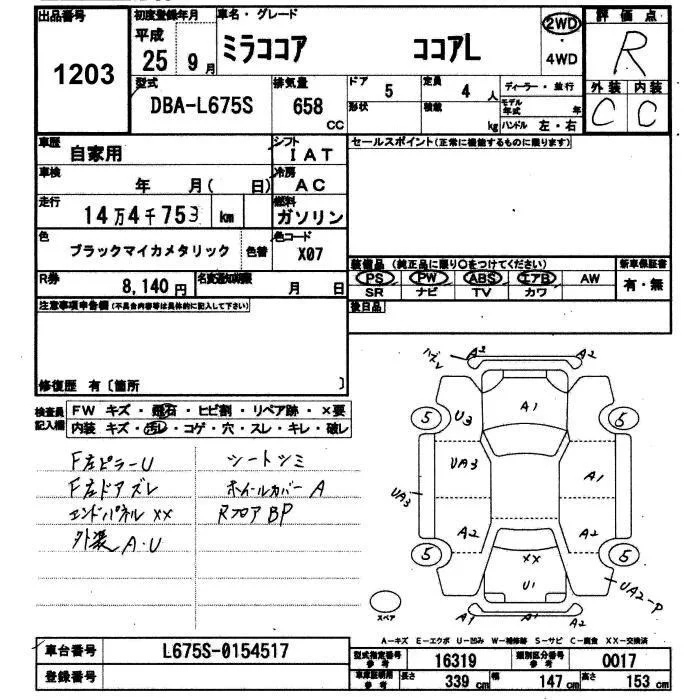 出品番号 初度登録年月 車名・グレード 評価点
1203 平成 25年9月 ミラココア ココアL 2WD・4WD R
型式 排気量 ドア 5 定員 4人 ディーラー・並行 外装 内装
DBA-L675S 658CC 形状 積載 kg モデル年式 年 C C
ハンドル 左・右
車歴 自家用 シフト IAT セールスポイント(正常に機能するものに限ります)
車検 年 月( 日) 冷房 AC
走行 14万4千753 km 燃料 ガソリン
色 ブラックマイカメタリック 色替 色コード X07
装備品 (純正品に限り○をつけてください) 新車保証書
R券 8,140円 名変通知期限 月 日 PS PW ABS エアB AW 有・無
SR ナビ TV カワ
注意事項申告欄(不具合内容等は具体的に記入して下さい) 後日品
修復歴 有〔箇所 〕
検査員記入欄 FW キズ・飛石・ヒビ割・リペア跡・×要
内装 キズ・汚レ・コゲ・穴・スレ・キレ・破レ
F左ピラーU シートシミ
F左ドアズレ ホイールカバー A
エンドパネル XX RフロアBP
外装 A・U
ハズレ A2 A2
A1
5 U3 5
UA3 A1
UA3
A2 A2
5 XX 5
U1 UA2-P
A1 A1 A2
スペア
A-キズ E-エクボ U-凹み W-補修跡 S-サビ C-腐食 XX-交換済
車台番号 L675S-0154517 型式指定番号 参考 16319 類別区分番号 参考 0017
登録番号 車庫証明用 参考 長さ 339 cm 幅 147 cm 高さ 153 cm